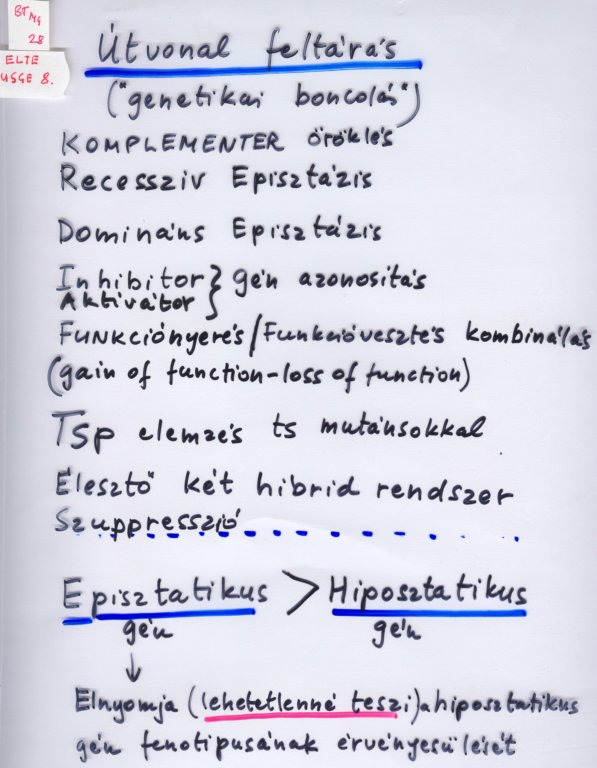 BT MG
28
ELTE
USGE 8.
Útvonal feltárás
("genetikai boncolás")
KOMPLEMENTER öröklés
Recesszív Episztázis
Domináns Episztázis
Inhibitor } gén azonosítás
Aktivátor
Funkciónyerés/Funkcióvesztés kombinálás
(gain of function-loss of function)
Tsp elemzés ts mutánsokkal
Élesztő két hibrid rendszer
Szuppresszió
Episztatikus > Hiposztatikus
gén gén
↓
Elnyomja (lehetetlenné teszi) a hiposztatikus
gén fenotípusának érvényesülését